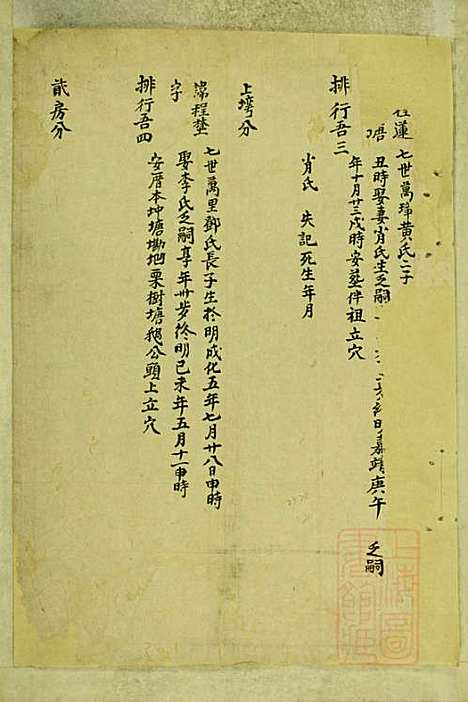 七世萬琤黃氏二子
丑時娶妻肖氏生乏嗣 日嘉靖庚午 乏嗣
年十月廿三戌時安塟伴祖立穴
排行吾三
肖氏 失記死生年月
上塆分
七世萬里鄧氏長子生於明成化五年七月廿八日申時
字
娶李氏乏嗣享年卅步終明己未年五月十一申時
排行吾四
安厝本冲塘墈地栗樹塘鵝公頭上立穴
貳房分